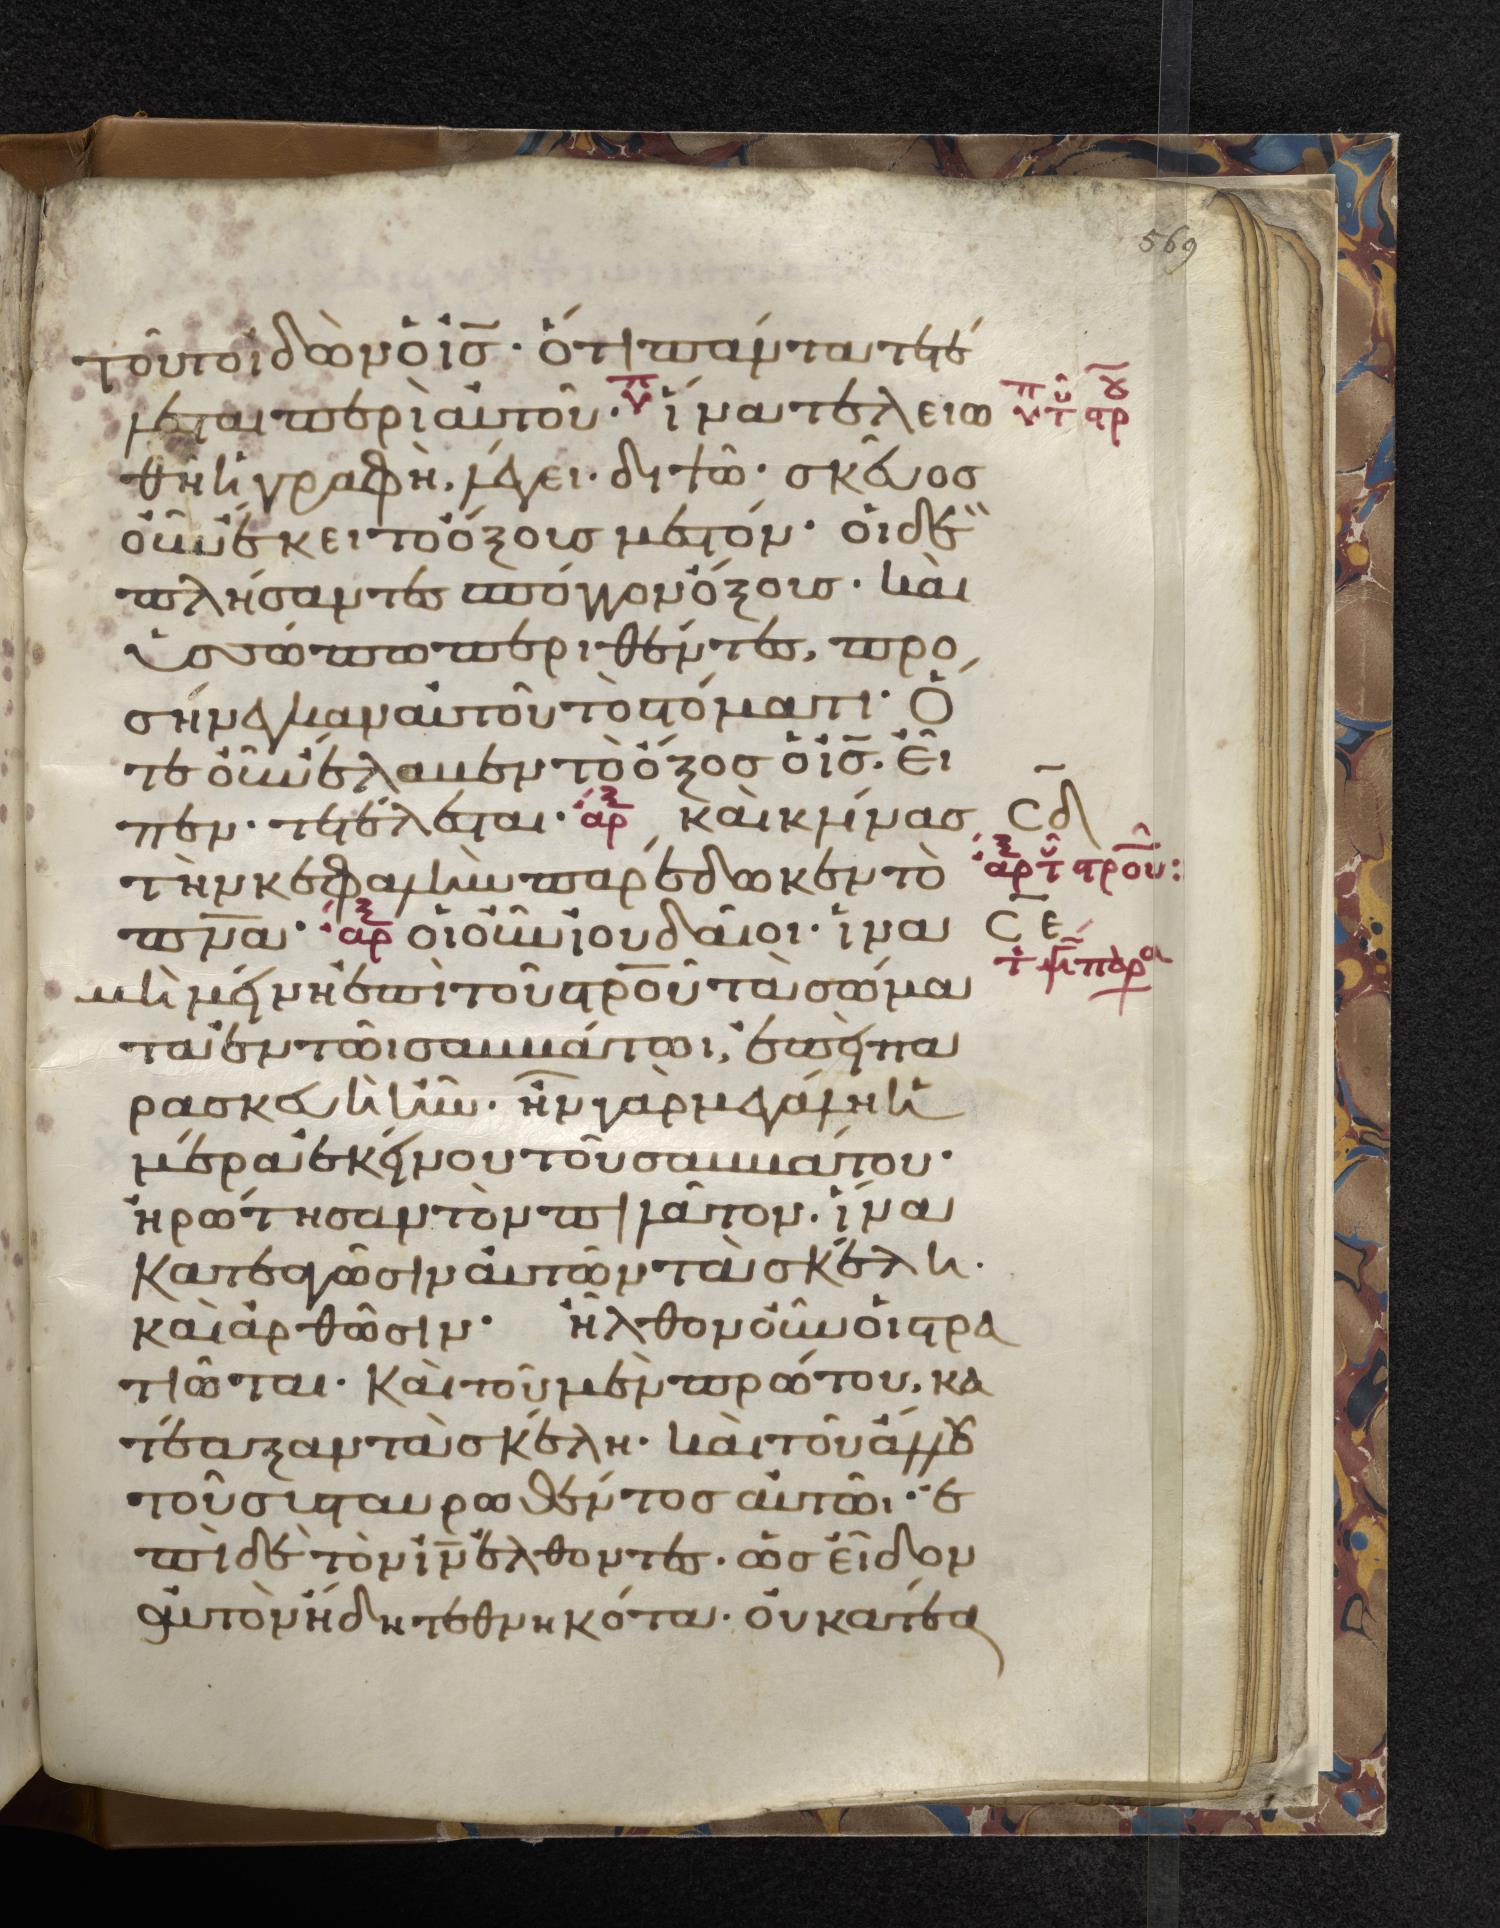 569
τοῦτο ἰδὼν ὁ ἰ̅σ̅· ὅτι πάντα τετέ
λεσται περὶ αὐτοῦ· ἵνα τελειω
θῆ ἡ γραφὴ, λέγει· διψῶ· σκεῦος
οὖν ἔκειτο ὄξους μεστόν· οἱ δὲ
πλήσαντες σπόγγον ὄξους· καὶ
ὑσσώπω περιθέντες, προ
σήνεγκαν αὐτοῦ τὸ στόματι· Ὅ
τε οὖν ἔλαβεν τὸ ὄξος ὁ ἰ̅σ̅. εἶ
πεν· τετέλεσται· ἀρξ καὶ κλίνας σ̅δ
τὴν κεφαλὴν παρέδωκεν τὸ
π̅ν̅α· ἀρξ οἱ οὖν ἰουδαῖοι· ἵνα σ̅ε
μὴ μείνη ἐπὶ τοῦ σ̅τ̅ρ̅ο̅ῦ τὰ σώμα
τα ἐν τῶι σαββάτωι, ἐπεὶ πα
ρασκευὴ ἦν· ἦν γὰρ μεγάλη ἡ
μέρα ἐκείνου τοῦ σαββάτου·
ἠρώτησαν τὸν πιλᾶτον. ἵνα
κατεαγῶσιν αὐτῶν τὰ σκέλη.
καὶ ἀρθῶσιν· ἦλθον οὖν οἱ στρα
τιῶται· καὶ τοῦ μὲν πρώτου, κα
τέαξαν τὰ σκέλη· καὶ τοῦ ἄλλου
τοῦ συσταυρωθέντος αὐτῶι· ἐ
πὶ δὲ τὸν ἰ̅ν̅ ἐλθοντες· ὡς εἶδον
αὐτὸν ἤδη τεθνηκότα· οὐ κατέα